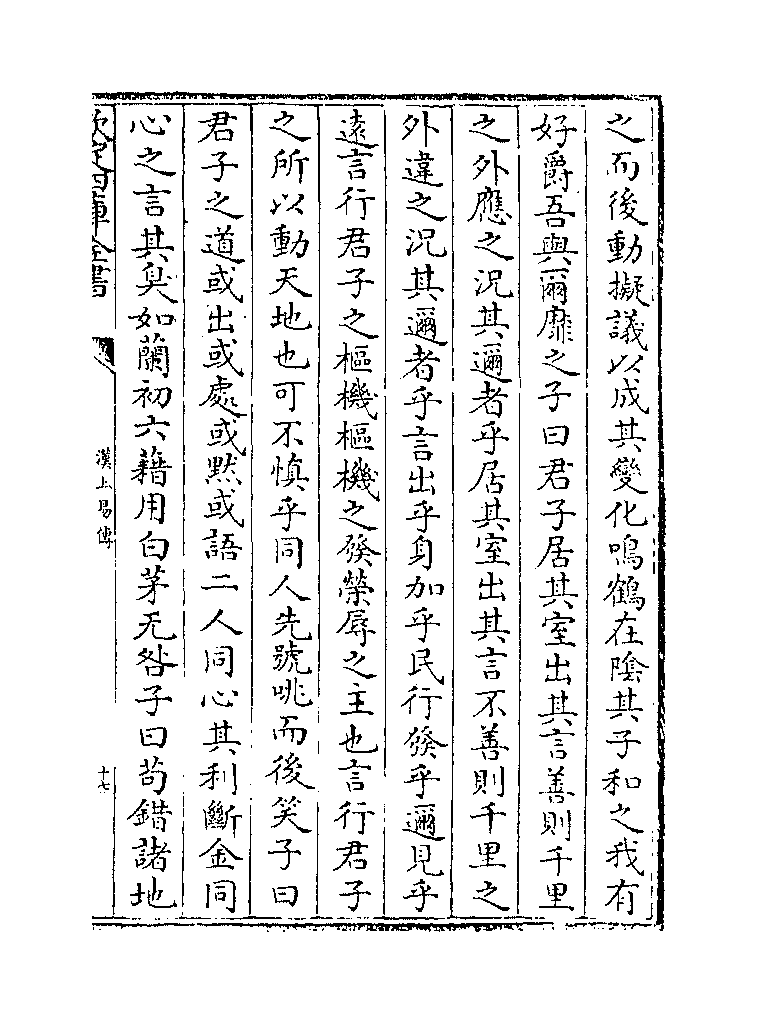 之而後動擬議以成其變化鳴鶴在陰其子和之我有
好爵吾與爾靡之子曰君子居其室出其言善則千里
之外應之況其邇者乎居其室出其言不善則千里之
外違之況其邇者乎言出乎身加乎民行發乎邇見乎
遠言行君子之樞機樞機之發榮辱之主也言行君子
之所以動天地也可不慎乎同人先號咷而後笑子曰
君子之道或出或處或默或語二人同心其利斷金同
心之言其臭如蘭初六藉用白茅无咎子曰苟錯諸地
欽定四庫全書
漢上易傳
十七